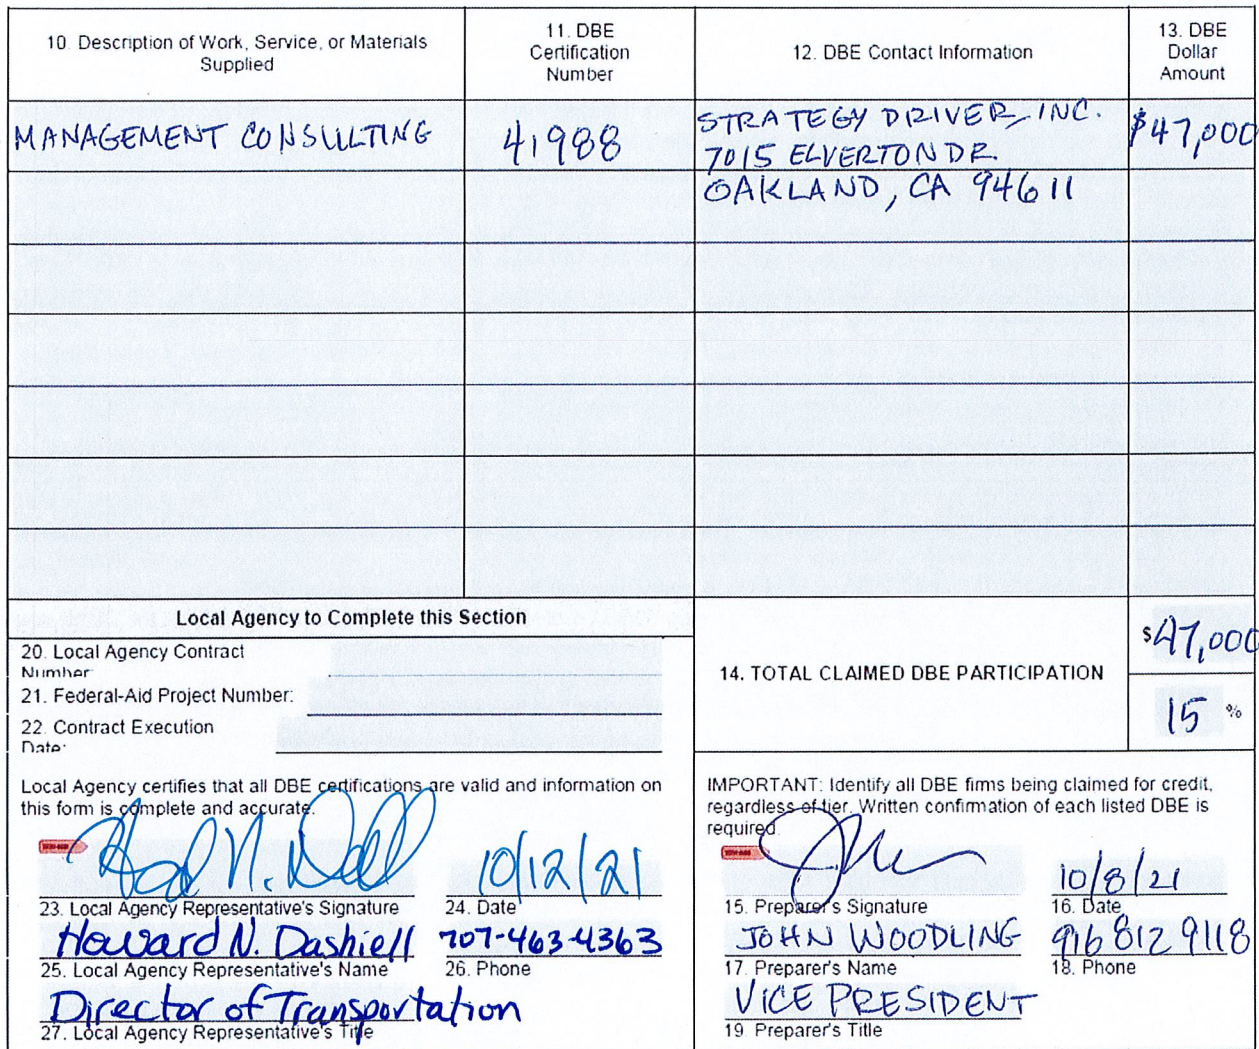 10. Description of Work, Service, or Materials
Supplied
11. DBE
Certification
Number
12. DBE Contact Information
13. DBE
Dollar
Amount
MANAGEMENT CONSULTING
41988
STRATEGY DRIVER, INC.
7015 ELVERTON DR.
OAKLAND, CA 94611
$47,000
Local Agency to Complete this Section
20. Local Agency Contract
Number:
21. Federal-Aid Project Number:
22. Contract Execution
Date:
14. TOTAL CLAIMED DBE PARTICIPATION
$47,000
15 %
Local Agency certifies that all DBE certifications are valid and information on
this form is complete and accurate.
10/12/21
23. Local Agency Representative's Signature
24. Date
Howard N. Dashiell
707-463-4363
25. Local Agency Representative's Name
26. Phone
Director of Transportation
27. Local Agency Representative's Title
IMPORTANT: Identify all DBE firms being claimed for credit,
regardless of tier. Written confirmation of each listed DBE is
required.
10/8/21
15. Preparer's Signature
16. Date
JOHN WOODLING
916 812 9118
17. Preparer's Name
18. Phone
VICE PRESIDENT
19. Preparer's Title